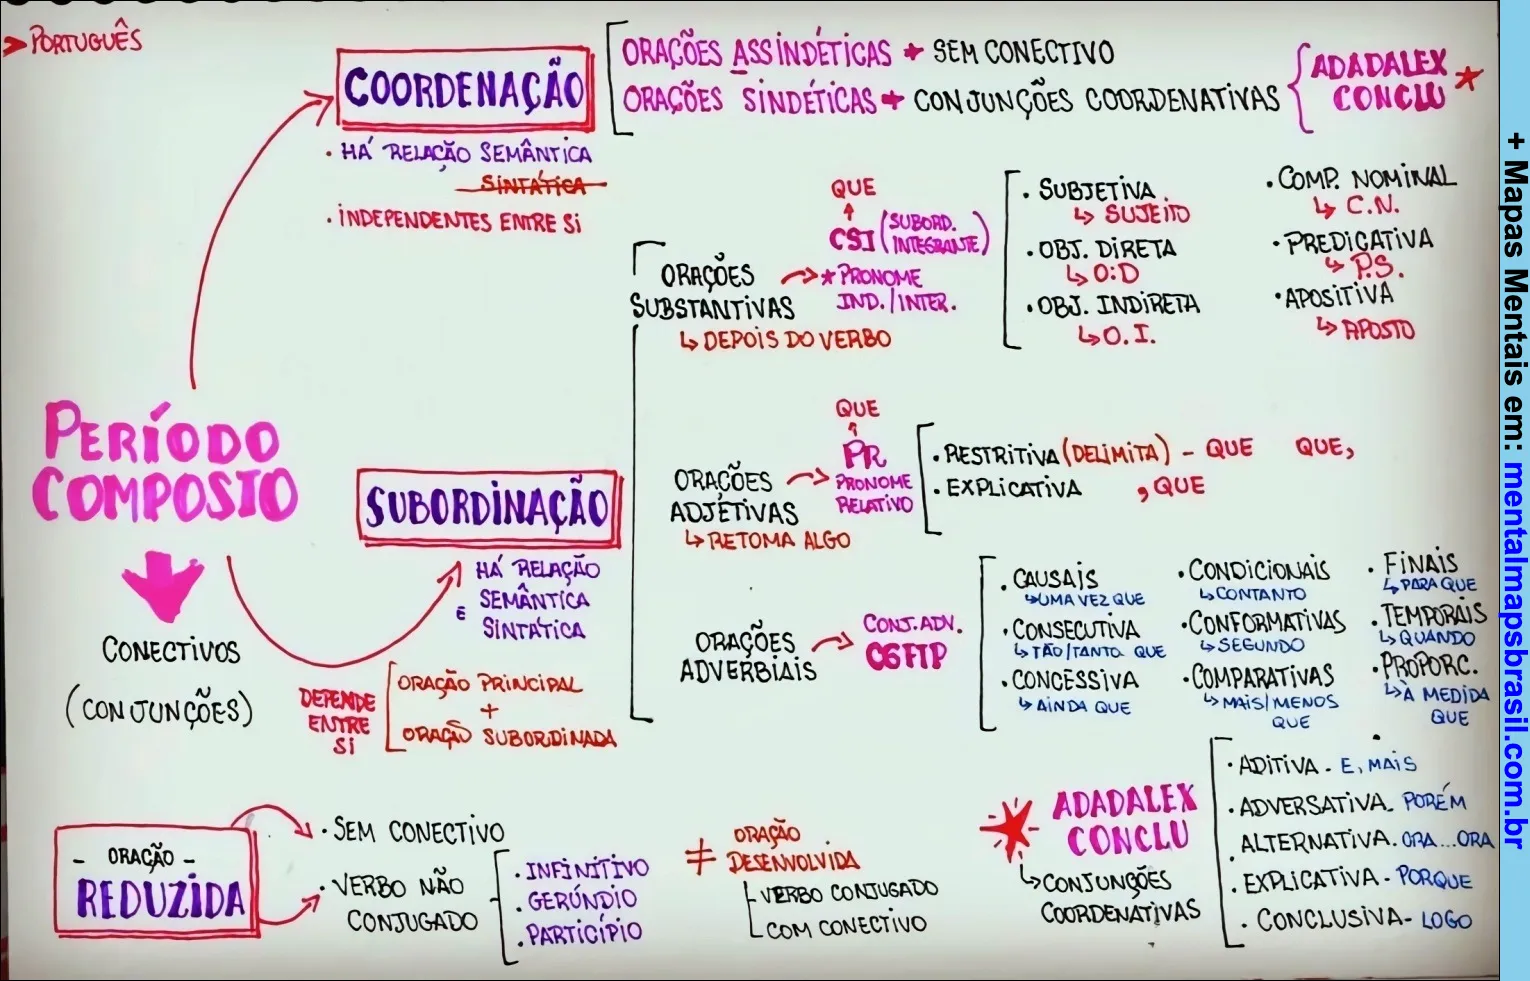 PORTUGUÊS
COORDENAÇÃO
• HÁ RELAÇÃO SEMÂNTICA
SINTÁTICA
• INDEPENDENTES ENTRE SI
ORAÇÕES ASSINDÉTICAS → SEM CONECTIVO
ORAÇÕES SINDÉTICAS → CONJUNÇÕES COORDENATIVAS
ADADALEX
CONCLU
PERÍODO
COMPOSTO
CONECTIVOS
(CONJUNÇÕES)
SUBORDINAÇÃO
HÁ RELAÇÃO
SEMÂNTICA
E
SINTÁTICA
DEPENDE
ENTRE
SI
ORAÇÃO PRINCIPAL
+
ORAÇÃO SUBORDINADA
ORAÇÕES
SUBSTANTIVAS
↳ DEPOIS DO VERBO
QUE
CSI (SUBORD. INTEGRANTE)
* PRONOME
IND./INTER.
• SUBJETIVA
↳ SUJEITO
• OBJ. DIRETA
↳ O.D
• OBJ. INDIRETA
↳ O.I.
• COMP. NOMINAL
↳ C.N.
• PREDICATIVA
↳ P.S.
• APOSITIVA
↳ APOSTO
ORAÇÕES
ADJETIVAS
↳ RETOMA ALGO
QUE
PR
PRONOME
RELATIVO
• RESTRITIVA (DELIMITA) - QUE QUE,
• EXPLICATIVA , QUE
ORAÇÕES
ADVERBIAIS
CONJ. ADV.
C6FTP
• CAUSAIS
↳ UMA VEZ QUE
• CONSECUTIVA
↳ TÃO/TANTO QUE
• CONCESSIVA
↳ AINDA QUE
• CONDICIONAIS
↳ CONTANTO
• CONFORMATIVAS
↳ SEGUNDO
• COMPARATIVAS
↳ MAIS/MENOS
QUE
• FINAIS
↳ PARA QUE
• TEMPORAIS
↳ QUANDO
• PROPORC.
↳ À MEDIDA
QUE
- ORAÇÃO -
REDUZIDA
• SEM CONECTIVO
• VERBO NÃO
CONJUGADO
• INFINITIVO
• GERÚNDIO
• PARTICÍPIO
≠ ORAÇÃO
DESENVOLVIDA
VERBO CONJUGADO
COM CONECTIVO
ADADALEX
CONCLU
↳ CONJUNÇÕES
COORDENATIVAS
• ADITIVA - E, MAIS
• ADVERSATIVA - PORÉM
• ALTERNATIVA - ORA...ORA
• EXPLICATIVA - PORQUE
• CONCLUSIVA - LOGO
+ Mapas Mentais em: mentalmapsbrasil.com.br